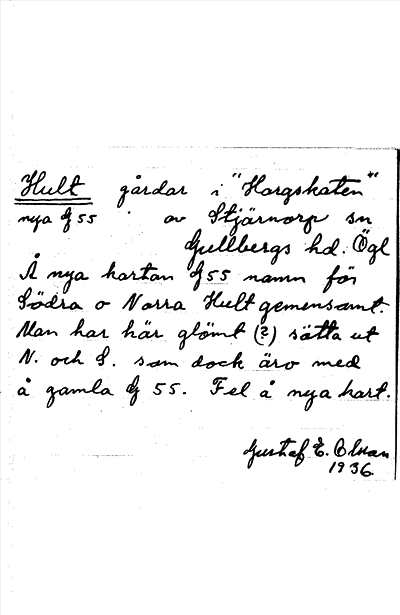 Hult gårdar i "Horgskaten"
nya G 55 av Stjärnorp sn
Gullbergs hd. Ögl
Å nya kartan G 55 namn för
Södra o Norra Hult gemensamt.
Man har här glömt (?) sätta ut
N. och S. som dock äro med
å gamla G 55. Fel å nya kart.
Gustaf E. Olsson
1936.